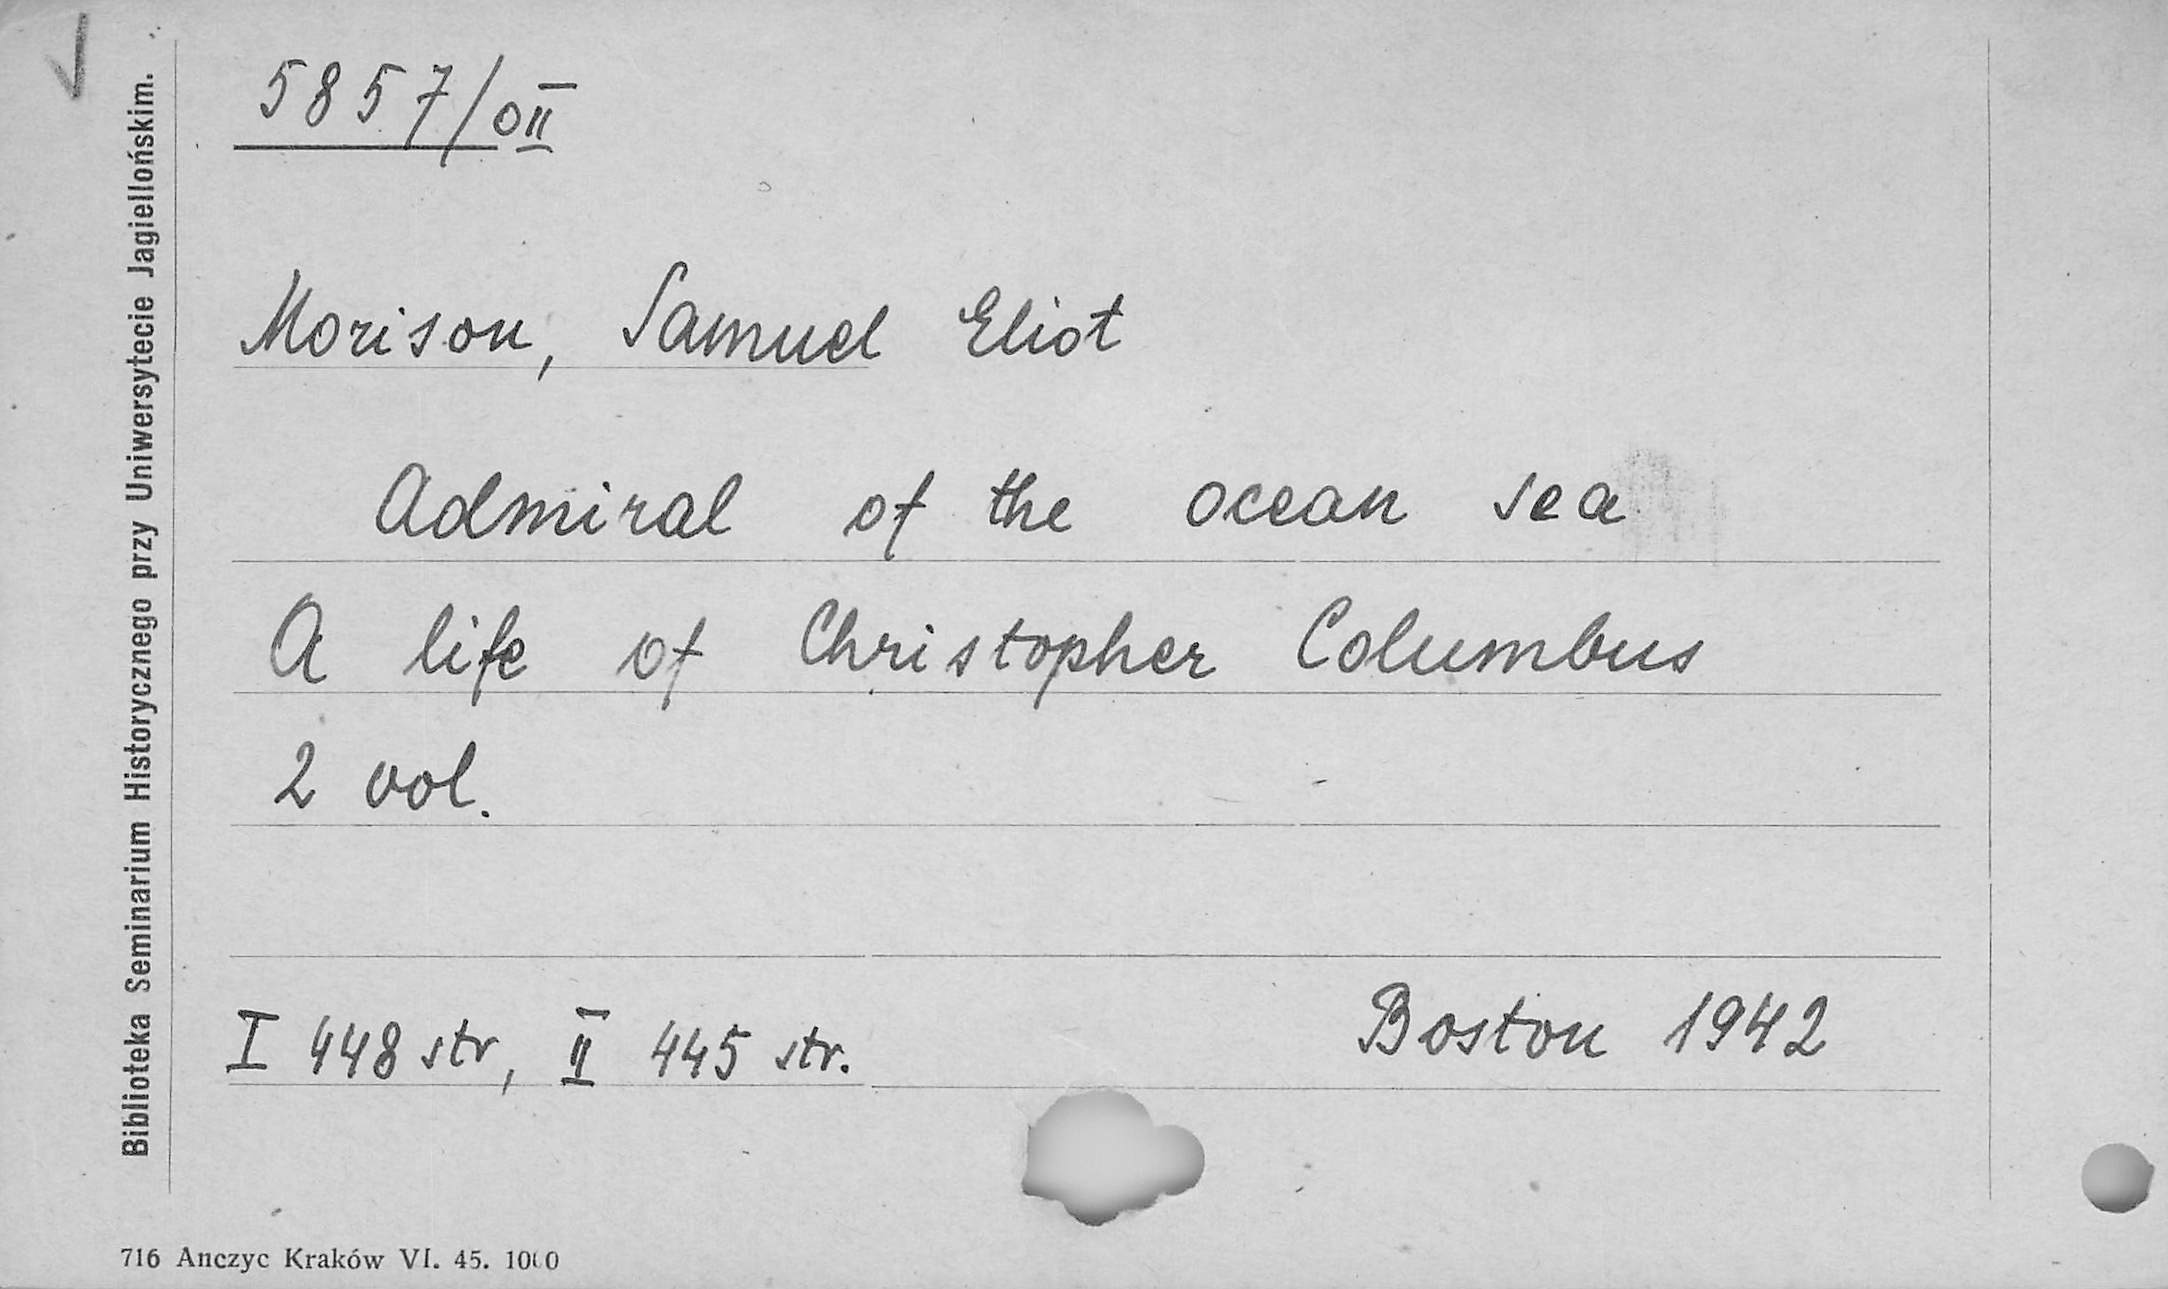 5857/0II
Morison, Samuel Eliot
Admiral of the ocean sea
A life of Christopher Columbus
2 vol.
I 448 str, II 445 str.
Boston 1942
Biblioteka Seminarium Historycznego przy Uniwersytecie Jagiellońskim.
716 Anczyc Kraków VI. 45. 1000